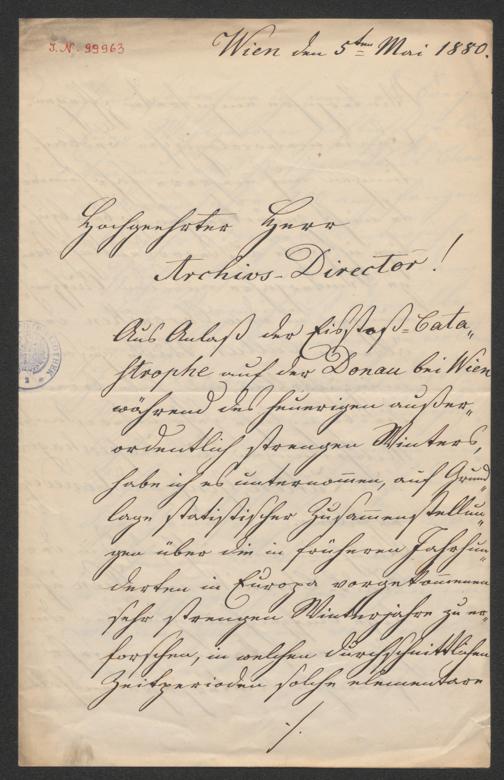 J. N. 99963
Wien den 5ten Mai 1880.
Hochgeehrter Herr
Archivs-Director!
Aus Anlaß der Eisstoß-Cata„
strophe auf der Donau bei Wien
während des heurigen außer„
ordentlich strengen Winters,
habe ich es unternommen, auf Grund„
lage statistischer Zusammenstellun„
gen über die in früheren Jahrhun„
derten in Europa vorgekommenen
sehr strengen Winterjahre zu er„
forschen, in welchen durchschnittlichen
Zeitperioden solche elementare
./.